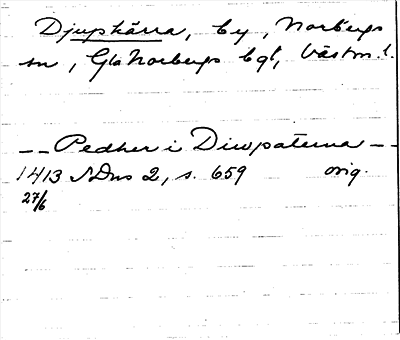 Djupkärra, by, Norbergs
sn, Gla Norbergs bgl, Västm. l.
-- Pedher i Diwpaterna --
1413 SDns 2, s. 659 orig.
27/6